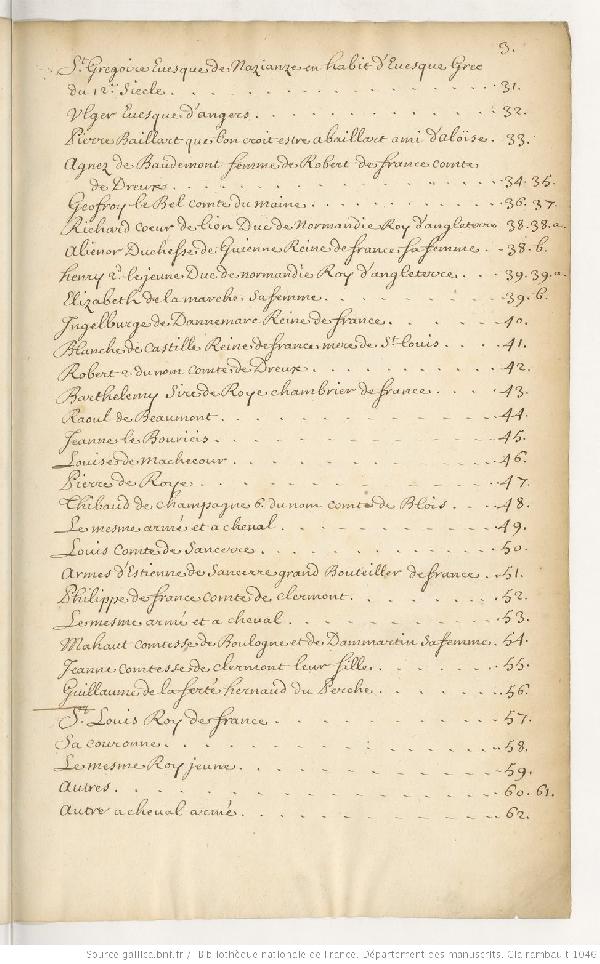 3.
St. Gregoire Evesque de Nazianze en habit d'Evesque Grec
du 12e. Siecle . . . 31.
Vlger Evesque d'angers . . . 32.
Pierre Baillart que l'on croit estre abaillart ami d'aloïse . 33.
Agnez de Baudemont femme de Robert de france comte
de Dreux . . . 34. 35.
Geofroy le Bel comte du maine . . . 36. 37.
Richard coeur de lion Duc de Normandie Roy d'angleterre 38. 38. a.
Alienor Duchesse de Guienne Reine de france sa femme . . 38. b.
henry 2e. le jeune Duc de normandie Roy d'angleterre . . . 39. 39. a.
Elizabeth de la marche sa femme . . . 39. b.
Ingelburge de Dannemarc Reine de france . . . 40.
Blanche de Castille Reine de france mere de St. louis . . . 41.
Robert 2 du nom comte de Dreux . . . 42.
Barthelemy Sire de Roye chambrier de france . . . 43.
Raoul de Beaumont . . . 44.
Jeanne le Bouriers . . . 45.
Louise de Machecour . . . 46.
Pierre de Roye . . . 47.
Thibaud de champagne 6. du nom comte de Blois . . . 48.
Le mesme armé et a cheval . . . 49.
Louis Comte de Sancerre . . . 50.
Armes d'Estienne de Sancerre grand Bouteiller de france . . 51.
Philippe de france comte de clermont . . . 52.
Le mesme armé et a cheval . . . 53.
Mahaut comtesse de Boulogne et de Dammartin sa femme . 54.
Jeanne comtesse de clermont leur fille . . . 55.
Guillaume de la ferté hernaud du Perche . . . 56.
St. Louis Roy de france . . . 57.
Sa couronne . . . 58.
Le mesme Roy jeune . . . 59.
Autres . . . 60. 61.
Autre a cheval armé . . . 62.
Source gallica.bnf.fr / Bibliothèque nationale de France. Département des manuscrits. Clairambault 1046